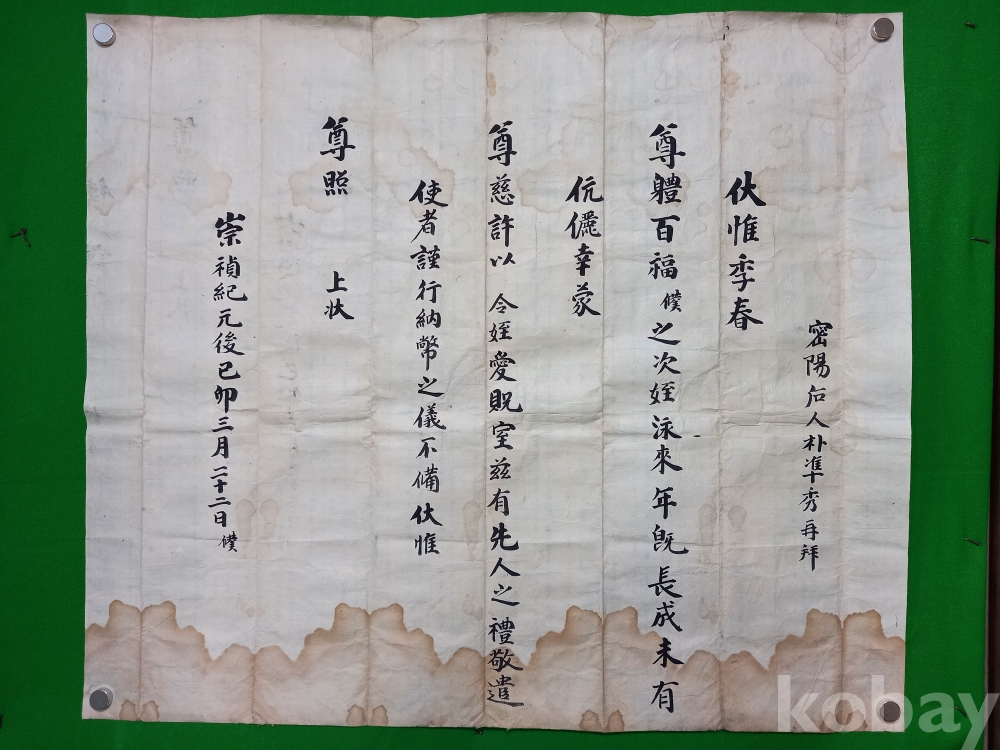 密陽后人朴準秀再拜
伏惟季春
尊體百福僕之次姪泳來年旣長成未有
伉儷幸蒙
尊慈許以 令姪愛貺室兹有先人之禮敬遣
使者謹行納幣之儀不備伏惟
尊照 上狀
崇禎紀元後己卯三月二十二日 僕
kobay